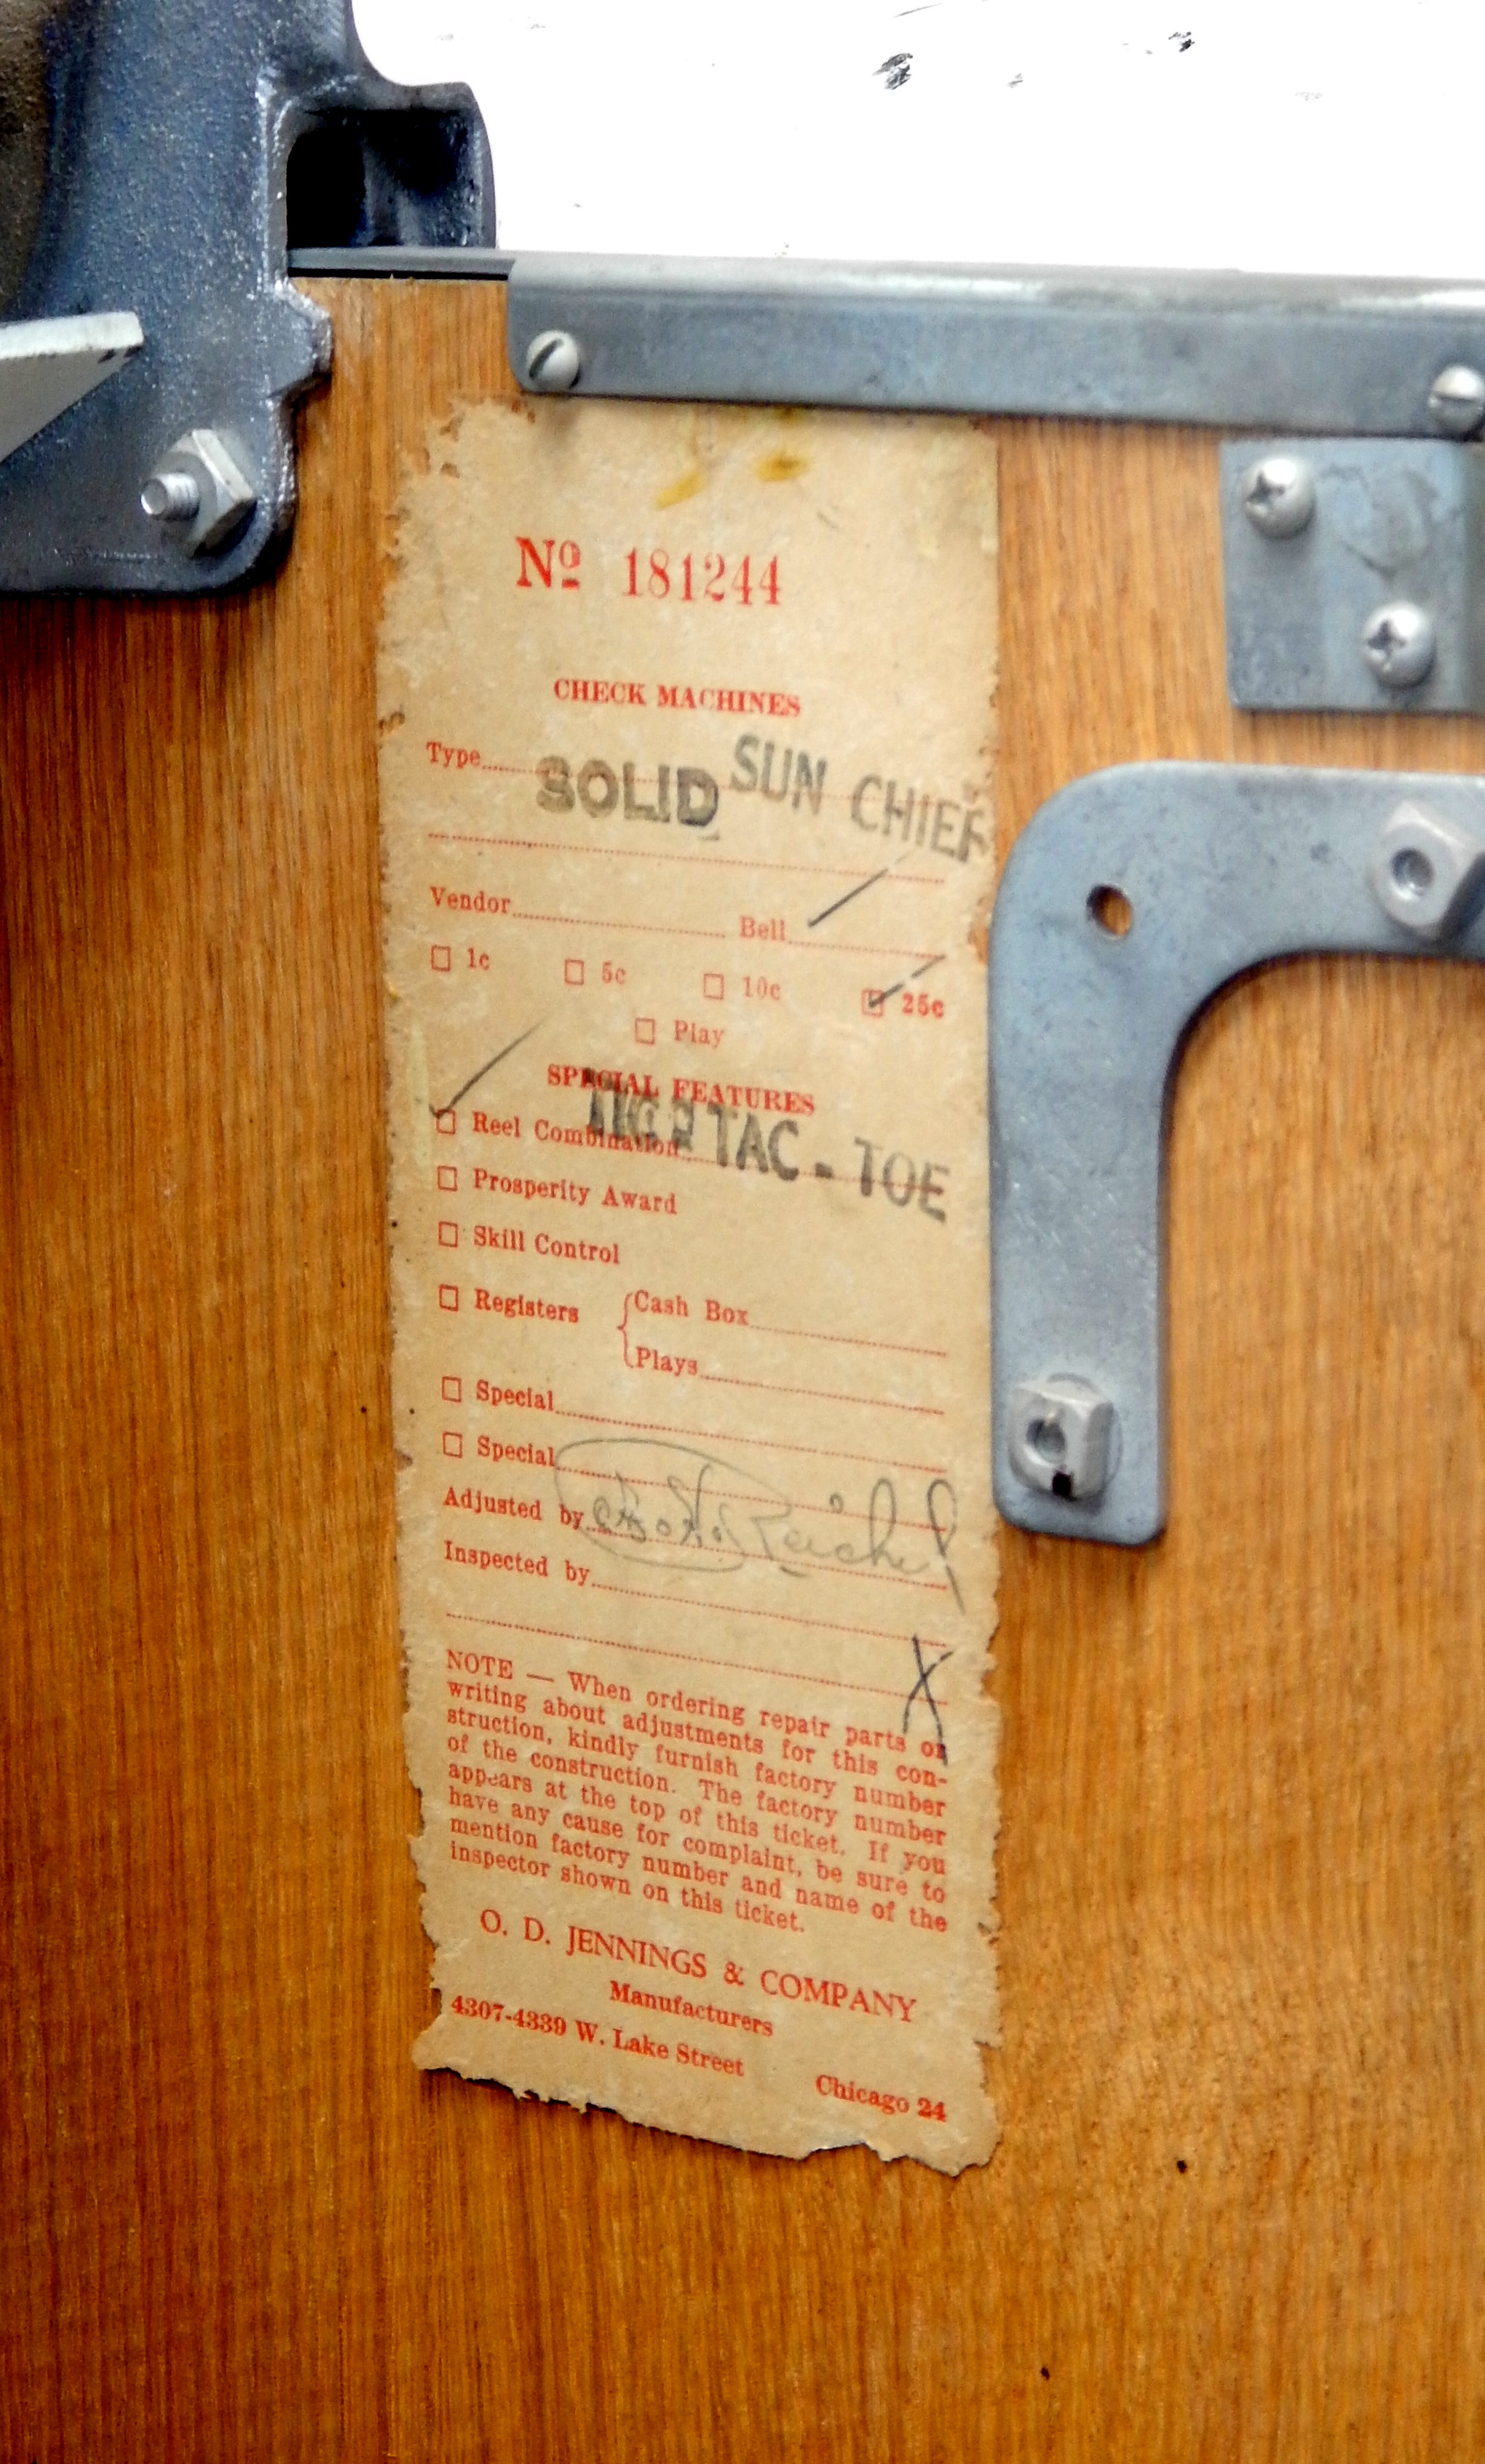 Nº 181244
CHECK MACHINES
Type SOLID SUN CHIEF
Vendor Bell
1c 5c 10c 25c
Play
SPECIAL FEATURES
Reel Combination TIC TAC - TOE
Prosperity Award
Skill Control
Registers Cash Box
Plays
Special
Special
Adjusted by
Inspected by
X
NOTE — When ordering repair parts or
writing about adjustments for this con-
struction, kindly furnish factory number
of the construction. The factory number
appears at the top of this ticket. If you
have any cause for complaint, be sure to
mention factory number and name of the
inspector shown on this ticket.
O. D. JENNINGS & COMPANY
Manufacturers
4307-4339 W. Lake Street Chicago 24